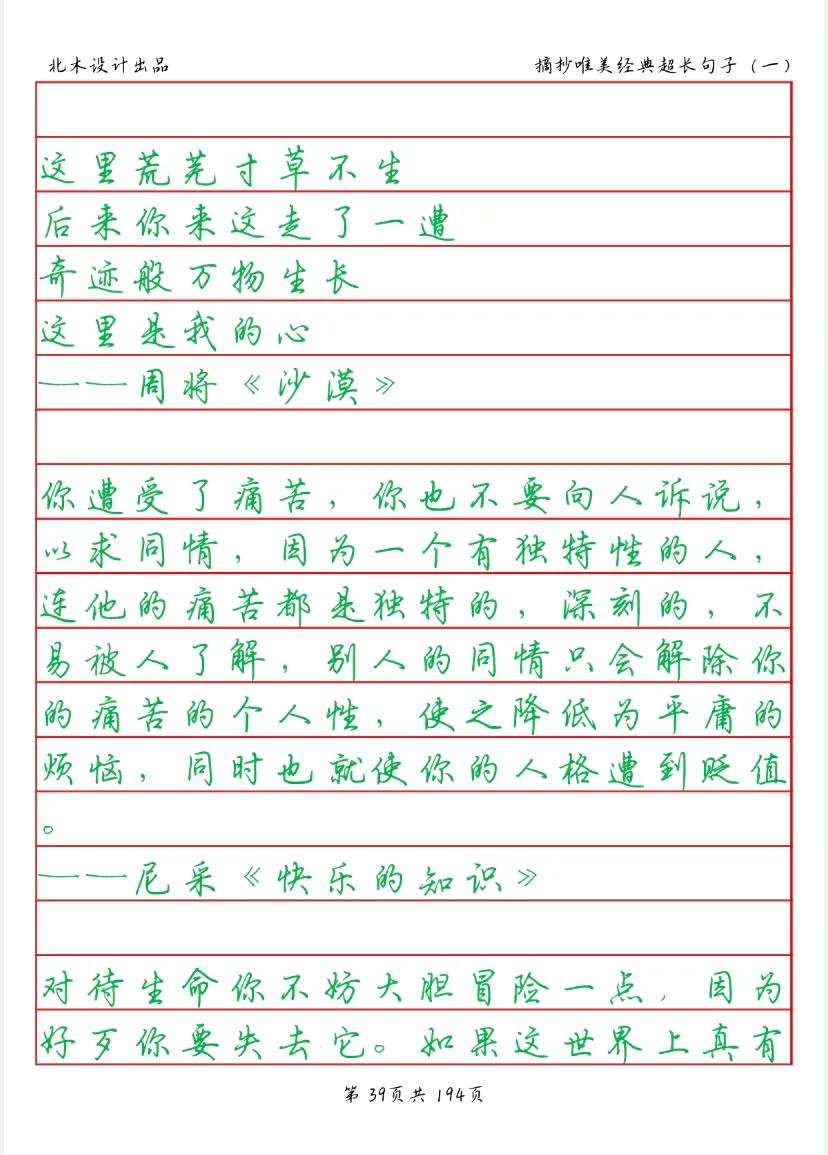 北木设计出品
摘抄唯美经典超长句子（一）
这里荒芜寸草不生
后来你来这走了一遭
奇迹般万物生长
这里是我的心
——周将《沙漠》
你遭受了痛苦，你也不要向人诉说，
以求同情，因为一个有独特性的人，
连他的痛苦都是独特的，深刻的，不
易被人了解，别人的同情只会解除你
的痛苦的个人性，使之降低为平庸的
烦恼，同时也就使你的人格遭到贬值
。
——尼采《快乐的知识》
对待生命你不妨大胆冒险一点，因为
好歹你要失去它。如果这世界上真有
第 39页共 194页